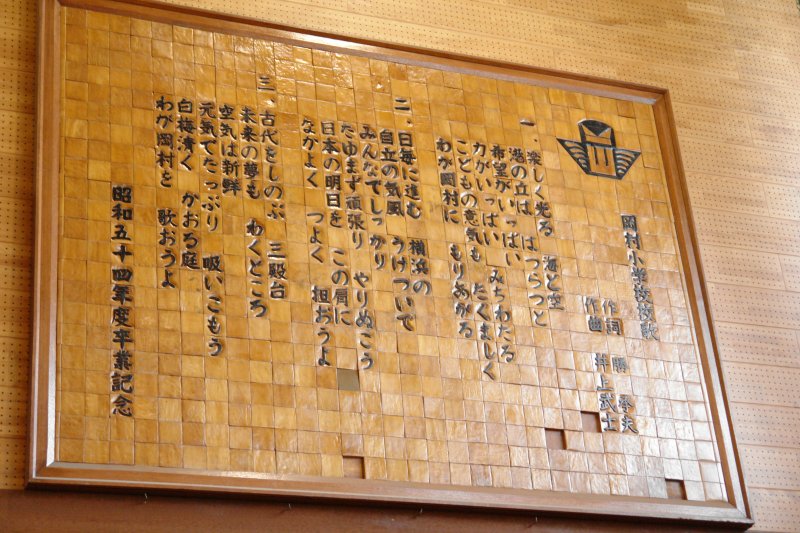 岡村小学校校歌
作詞 勝 承夫
作曲 井上武士
一、楽しく光る 海と空
港の立は はつらつと
希望がいっぱい みちわたる
力がいっぱい たくましく
こどもの意気も もりあがる
わが岡村に
二、日毎に進む 横浜の
自立の気風 うけついで
みんなでしっかり やりぬこう
たゆまず頑張り この肩に
日本の明日を 担おうよ
なかよく つよく
三、古代をしのぶ 三殿台
未来の夢も わくところ
空気は新鮮 吸いこもう
元気でたっぷり かおる庭
白梅清く 歌おうよ
わが岡村を
昭和五十四年度卒業記念